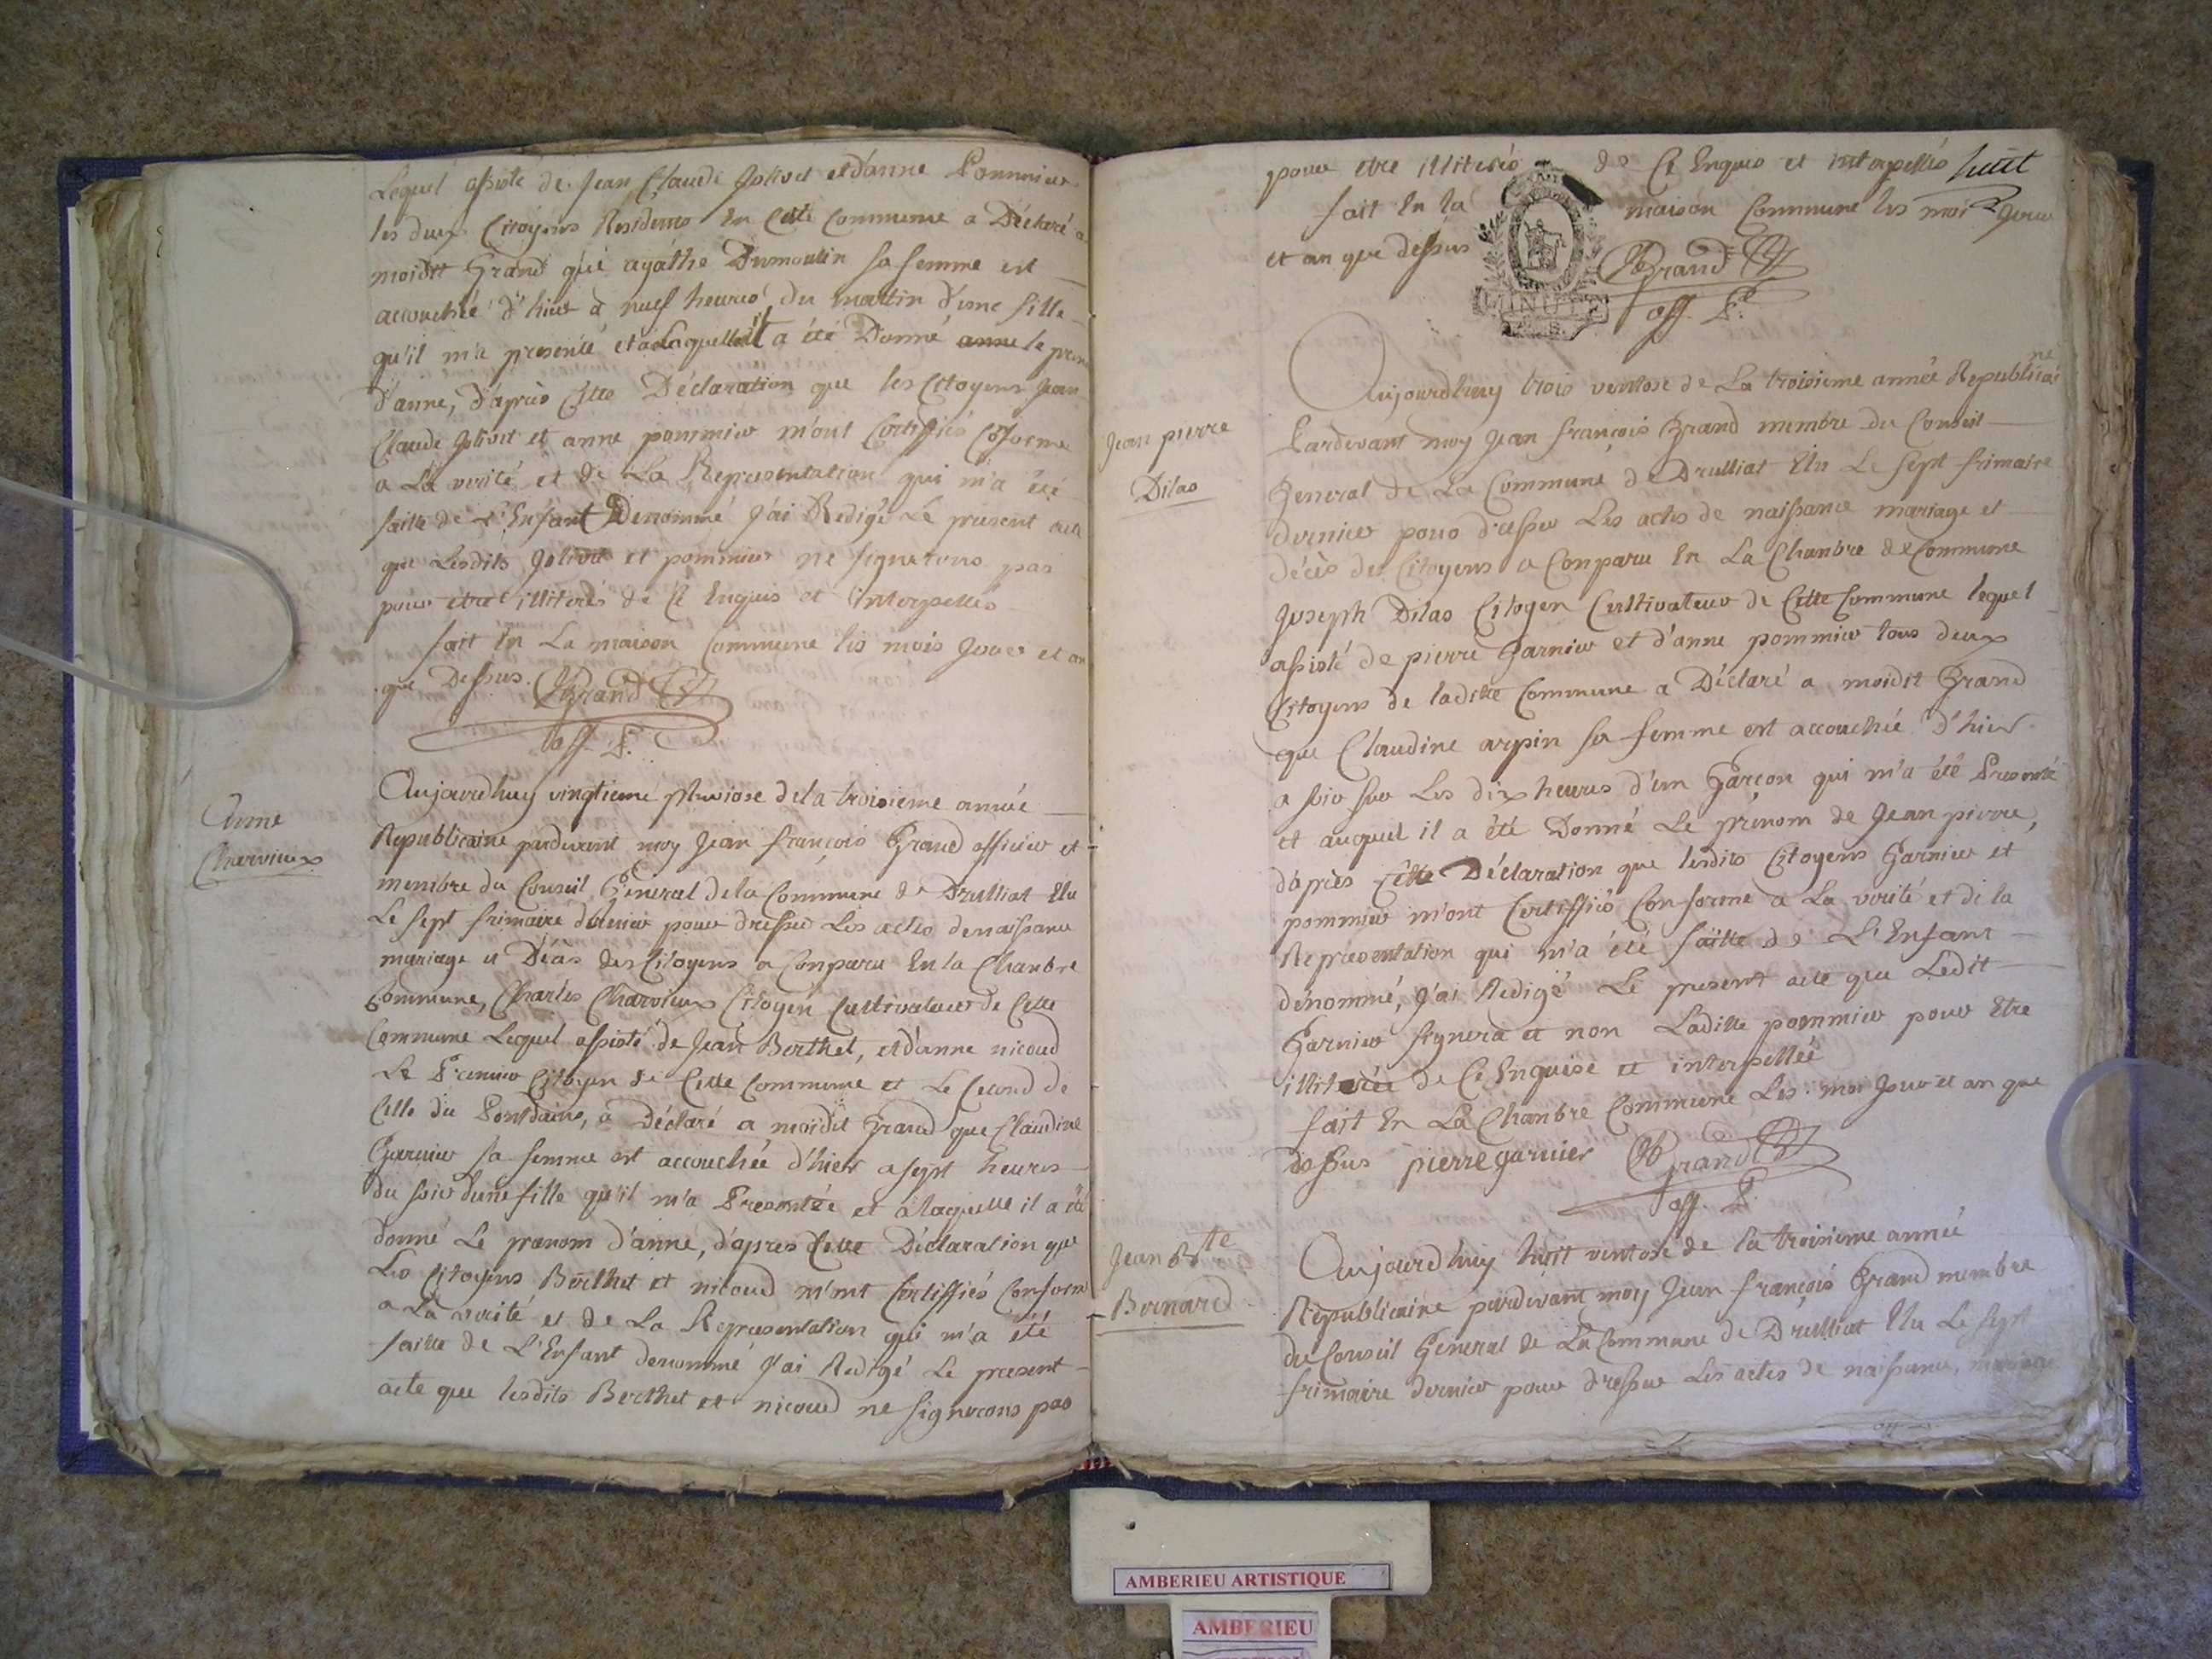 Lequel assisté de Jean Claude Jolivet et d'anne Pommier
les deux Citoyens Residents En Cette Commune a Déclaré a
moidit Grand que agáthe Dumoulin sa femme est
accouchée d'hier a neuf heures du mattin d'une fille
qu'il m'a presenté et a Laquelle il a été Donné anne le preno
d'anne, d'après Cette Déclaration que les Citoyens Jean
Claude Jolivet et anne pommier m'ont Certiffiés Conforme
a La verité et de La Representation qui m'a été
faitte de L'Enfant Denommé J'ai Redigé Le present acte
que Lesdits Jolivet et pommier ne signerons pas
pour etre illiterés de Ce Enquis et interpellés
fait En La maison Commune les mois Jour et an
que Dessus. Grand
off. P.
Anne
Charvieux
Aujourdhuy vingtieme pluviose de la troisieme année
Republicaine pardevant moy Jean françois Grand officier et
membre du Conseil General de la Commune de Druilliat Elu
Le sept frimaire dernier pour dresser Les actes de naissance
mariage et Décès des Citoyens a Conparu En la Chambre
Commune, Charles Charvieux Citoyen Cultivateur de Cette
Commune Lequel assisté de Jean Berthet, et d'anne nicoud
Le Premier Citoyen de Cette Commune et Le second de
Celle du Pontdains, a Déclaré a moidit Grand que Claudine
Garnier sa femme est accouchée d'hier a sept heures
du soir d'une fille qu'il m'a Presentée et a laquelle il a été
donné Le prenom d'anne, d'apres Cette Déclaration que
Les Citoyens Berthet et nicoud m'ont Certiffiés Conform
a La verité et de La Representation qui m'a été
faitte de L'Enfant denommé J'ai Redigé Le present
acte que lesdits Berthet et nicoud ne signerons pas
pour etre illiterés de Ce Enquis et interpellés huit
fait En la maison Commune les moi Jour
et an que dessus
MINUTE
Grand
off. P.
Jean pierre
Dilas
Aujourdhuy trois ventose de La troisieme année Republicai ne
Pardevant moy Jean françois Grand membre du Conseil
General de La Commune de Druilliat Elu Le sept frimaire
dernier pour dresser Les actes de naissance mariage et
décès des Citoyens a Conparu En La Chambre de Commune
Joseph Dilas Citoyen Cultivateur de Cette Commune lequel
assisté de pierre Garnier et d'anne pommier tous deux
Citoyens de laditte Commune a Déclaré a moidit Grand
que Claudine arpin sa femme est accouchée d'hier
a soir sur Les dix heures d'un Garçon qui m'a été Presenté
et auquel il a été Donné Le prénom de Jean pierre,
d'après Cette Déclaration que lesdits Citoyens Garnier et
pommier m'ont Certiffiés Conforme a La verité et de la
Representation qui m'a été faitte de L'Enfant
dénommé, J'ai Redigé Le present acte que Ledit
Garnier signera et non Laditte pommier pour Etre
illiterée de Ce Enquise et interpellée
fait En La Chambre Commune Les moi Jour et an que
dessus pierre garnier Grand
off. P.
Jean Bte
Bernard
Aujourdhuy huit ventose de la troisieme année
Republicaine pardevant moy Jean françois Grand membre
du Conseil General de La Commune de Druilliat Elu Le sept
frimaire dernier pour dresser Les actes de naissance, mariage
AMBERIEU ARTISTIQUE
AMBERIEU